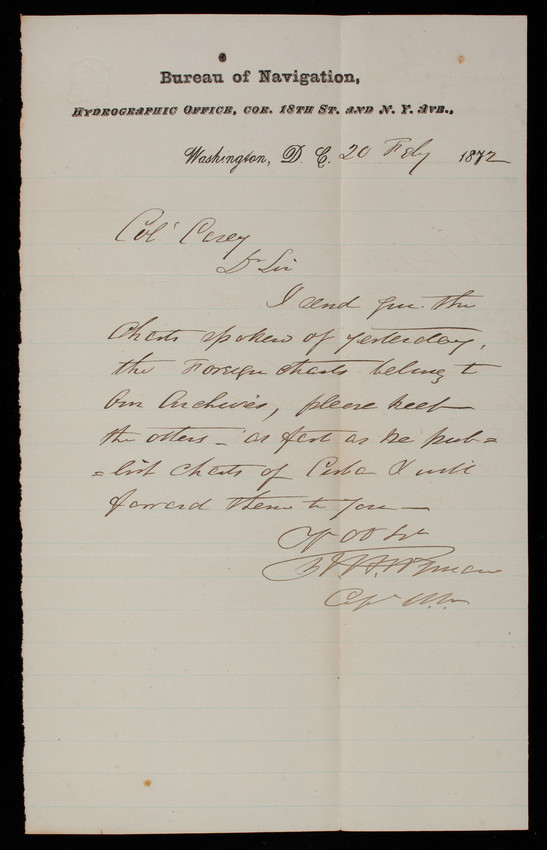 Bureau of Navigation,
HYDROGRAPHIC OFFICE, COR. 18TH ST. AND N. Y. AVE.,
Washington, D. C. 20 Feby 1872
Col Casey
Dr Sir
I send you the
Charts spoken of yesterday,
the Foreign charts belong to
Our Archives, please keep
the others - as fast as we pub=
=lish charts of Cuba I will
forward them to you -
Yr Obt Svt
R. H. Wyman
Capt